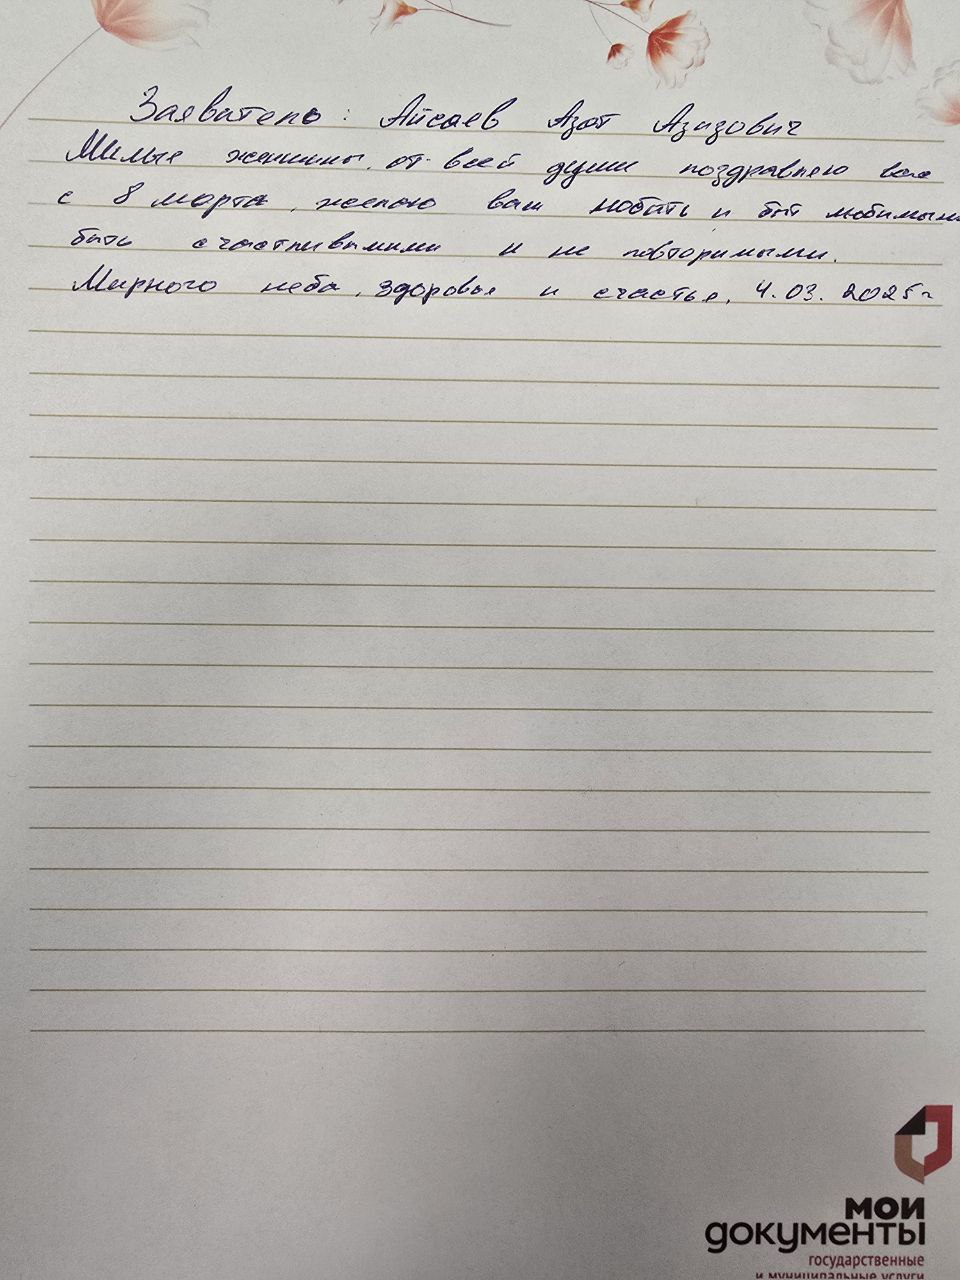 Заявитель: Айсаев Азат Азизович
Милые женщины, от всей души поздравляю вас
с 8 марта, желаю вам любить и быт любимыми
быть счастливымими и не повторимыми.
Мирного неба, здоровья и счастья, 4.03.2025г
мои
документы
государственные
и муниципальные услуги